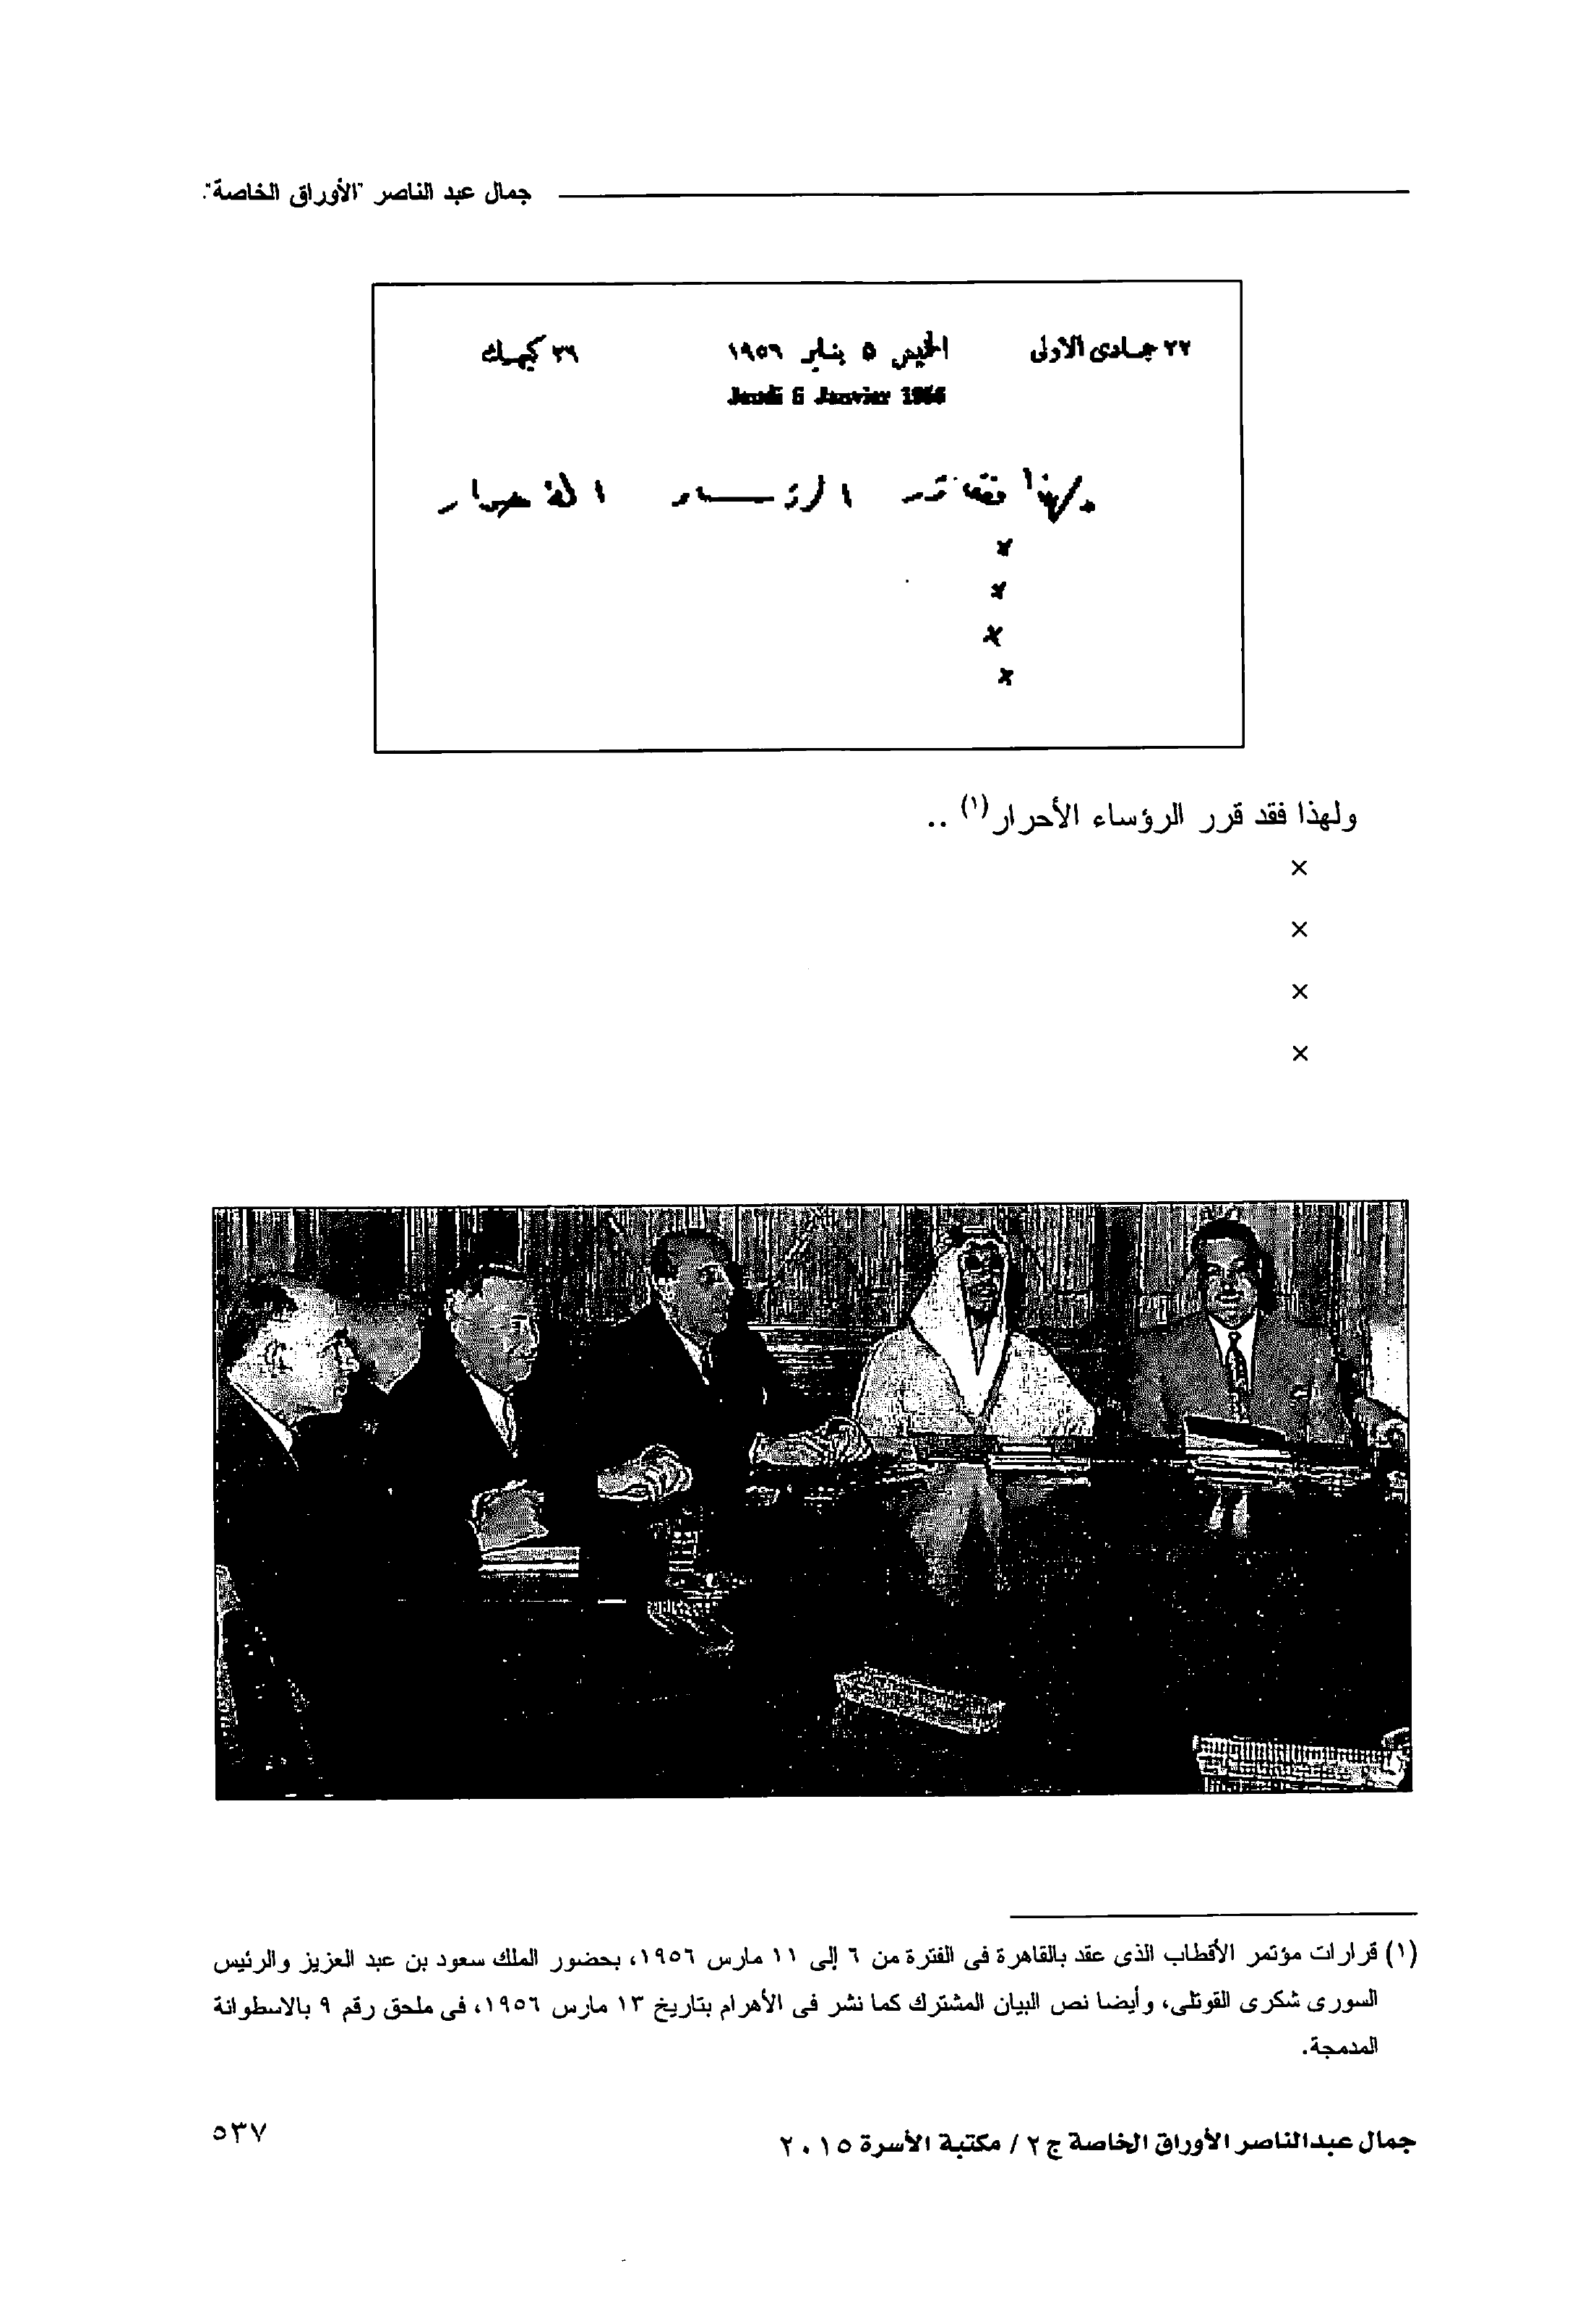 جمال عبد الناصر "الأوراق الخاصة".
٢٢ جمادى الاولى
الخميس ٥ يناير ١٩٥٦
٢٦ كيهك
Jeudi 5 Janvier 1956
ولهذا فقد قرر الرؤساء الأحرار
x
x
x
x
ولهذا فقد قرر الرؤساء الأحرار(١) ..
×
×
×
×
(١) قرارات مؤتمر الأقطاب الذى عقد بالقاهرة فى الفترة من ٦ إلى ١١ مارس ١٩٥٦، بحضور الملك سعود بن عبد العزيز والرئيس
السورى شكرى القوتلى، وأيضا نص البيان المشترك كما نشر فى الأهرام بتاريخ ١٣ مارس ١٩٥٦، فى ملحق رقم ٩ بالاسطوانة
المدمجة.
جمال عبدالناصر الأوراق الخاصة ج ٢ / مكتبة الأسرة ٢٠١٥
٥٣٧